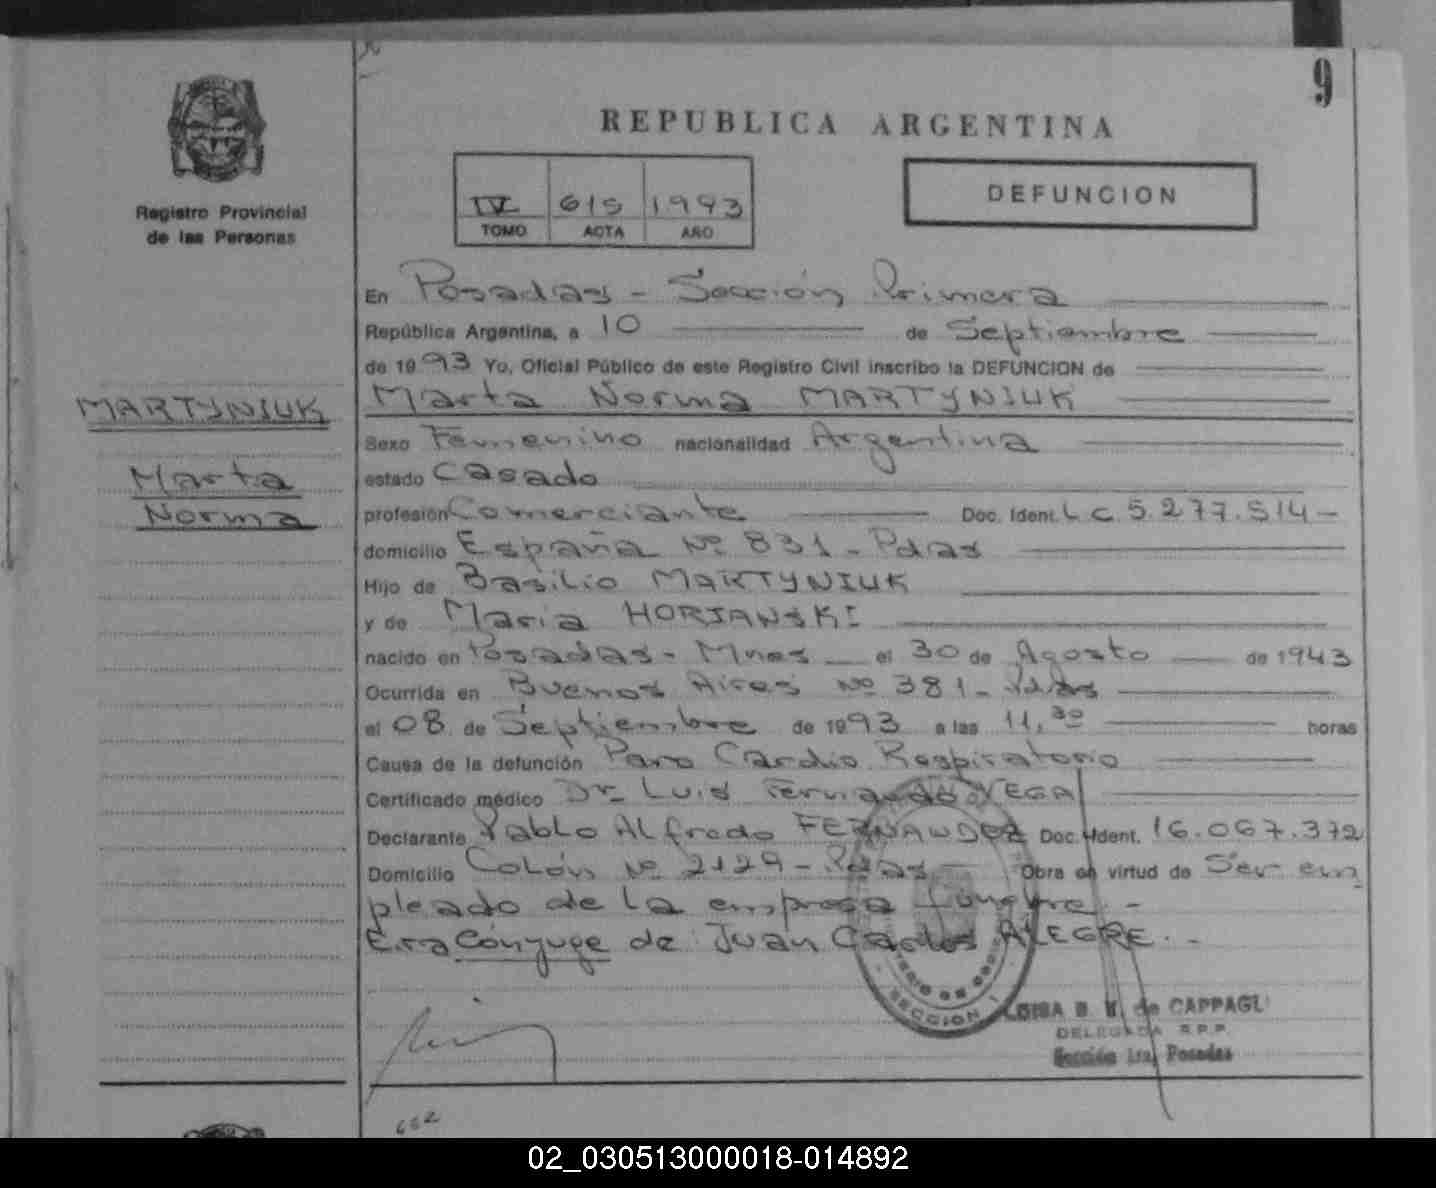 9
REPUBLICA ARGENTINA
DEFUNCION
IV 615 1993
TOMO ACTA AÑO
Registro Provincial
de las Personas
En Posadas - Sección Primera
República Argentina, a 10 de Septiembre
de 1993 Yo, Oficial Público de este Registro Civil inscribo la DEFUNCION de
MARTYNIUK
Marta
Norma
Marta Norma MARTYNIUK
Sexo Femenino nacionalidad Argentina
estado Casado
profesión Comerciante Doc. Ident. L C 5.277.514-
domicilio España Nº 831 - Pdas
Hijo de Basilio MARTYNIUK
y de Maria HORIANSKI
nacido en Posadas - Mnes el 30 de Agosto de 1943
Ocurrida en Buenos Aires Nº 381 - Pdas
el 08 de Septiembre de 1993 a las 11,30 horas
Causa de la defunción Paro Cardio Respiratorio
Certificado médico Dr Luis Fernando VEGA
Declarante Pablo Alfredo FERNANDEZ Doc. Ident. 16.067.372
Domicilio Colón Nº 2129 - Pdas Obra en virtud de Ser em
pleado de la empresa fúnebre. -
Era Cónyuge de Juan Carlos ALEGRE. -
SECCION 1
de CAPPAGLI
DELEGADA R.P.P.
Sección 1ra. Posadas
662
02_030513000018-014892